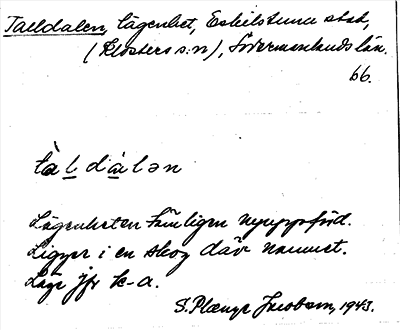 Talldalen, lägenhet, Eskilstuna stad,
(Klosters s:n), Södermanlands län.
66.
tàl dàlən
Lägenheten tämligen nyuppförd.
Ligger i en skog därav namnet.
Läge jfr k-a.
S. Plænge Jacobson, 1943.